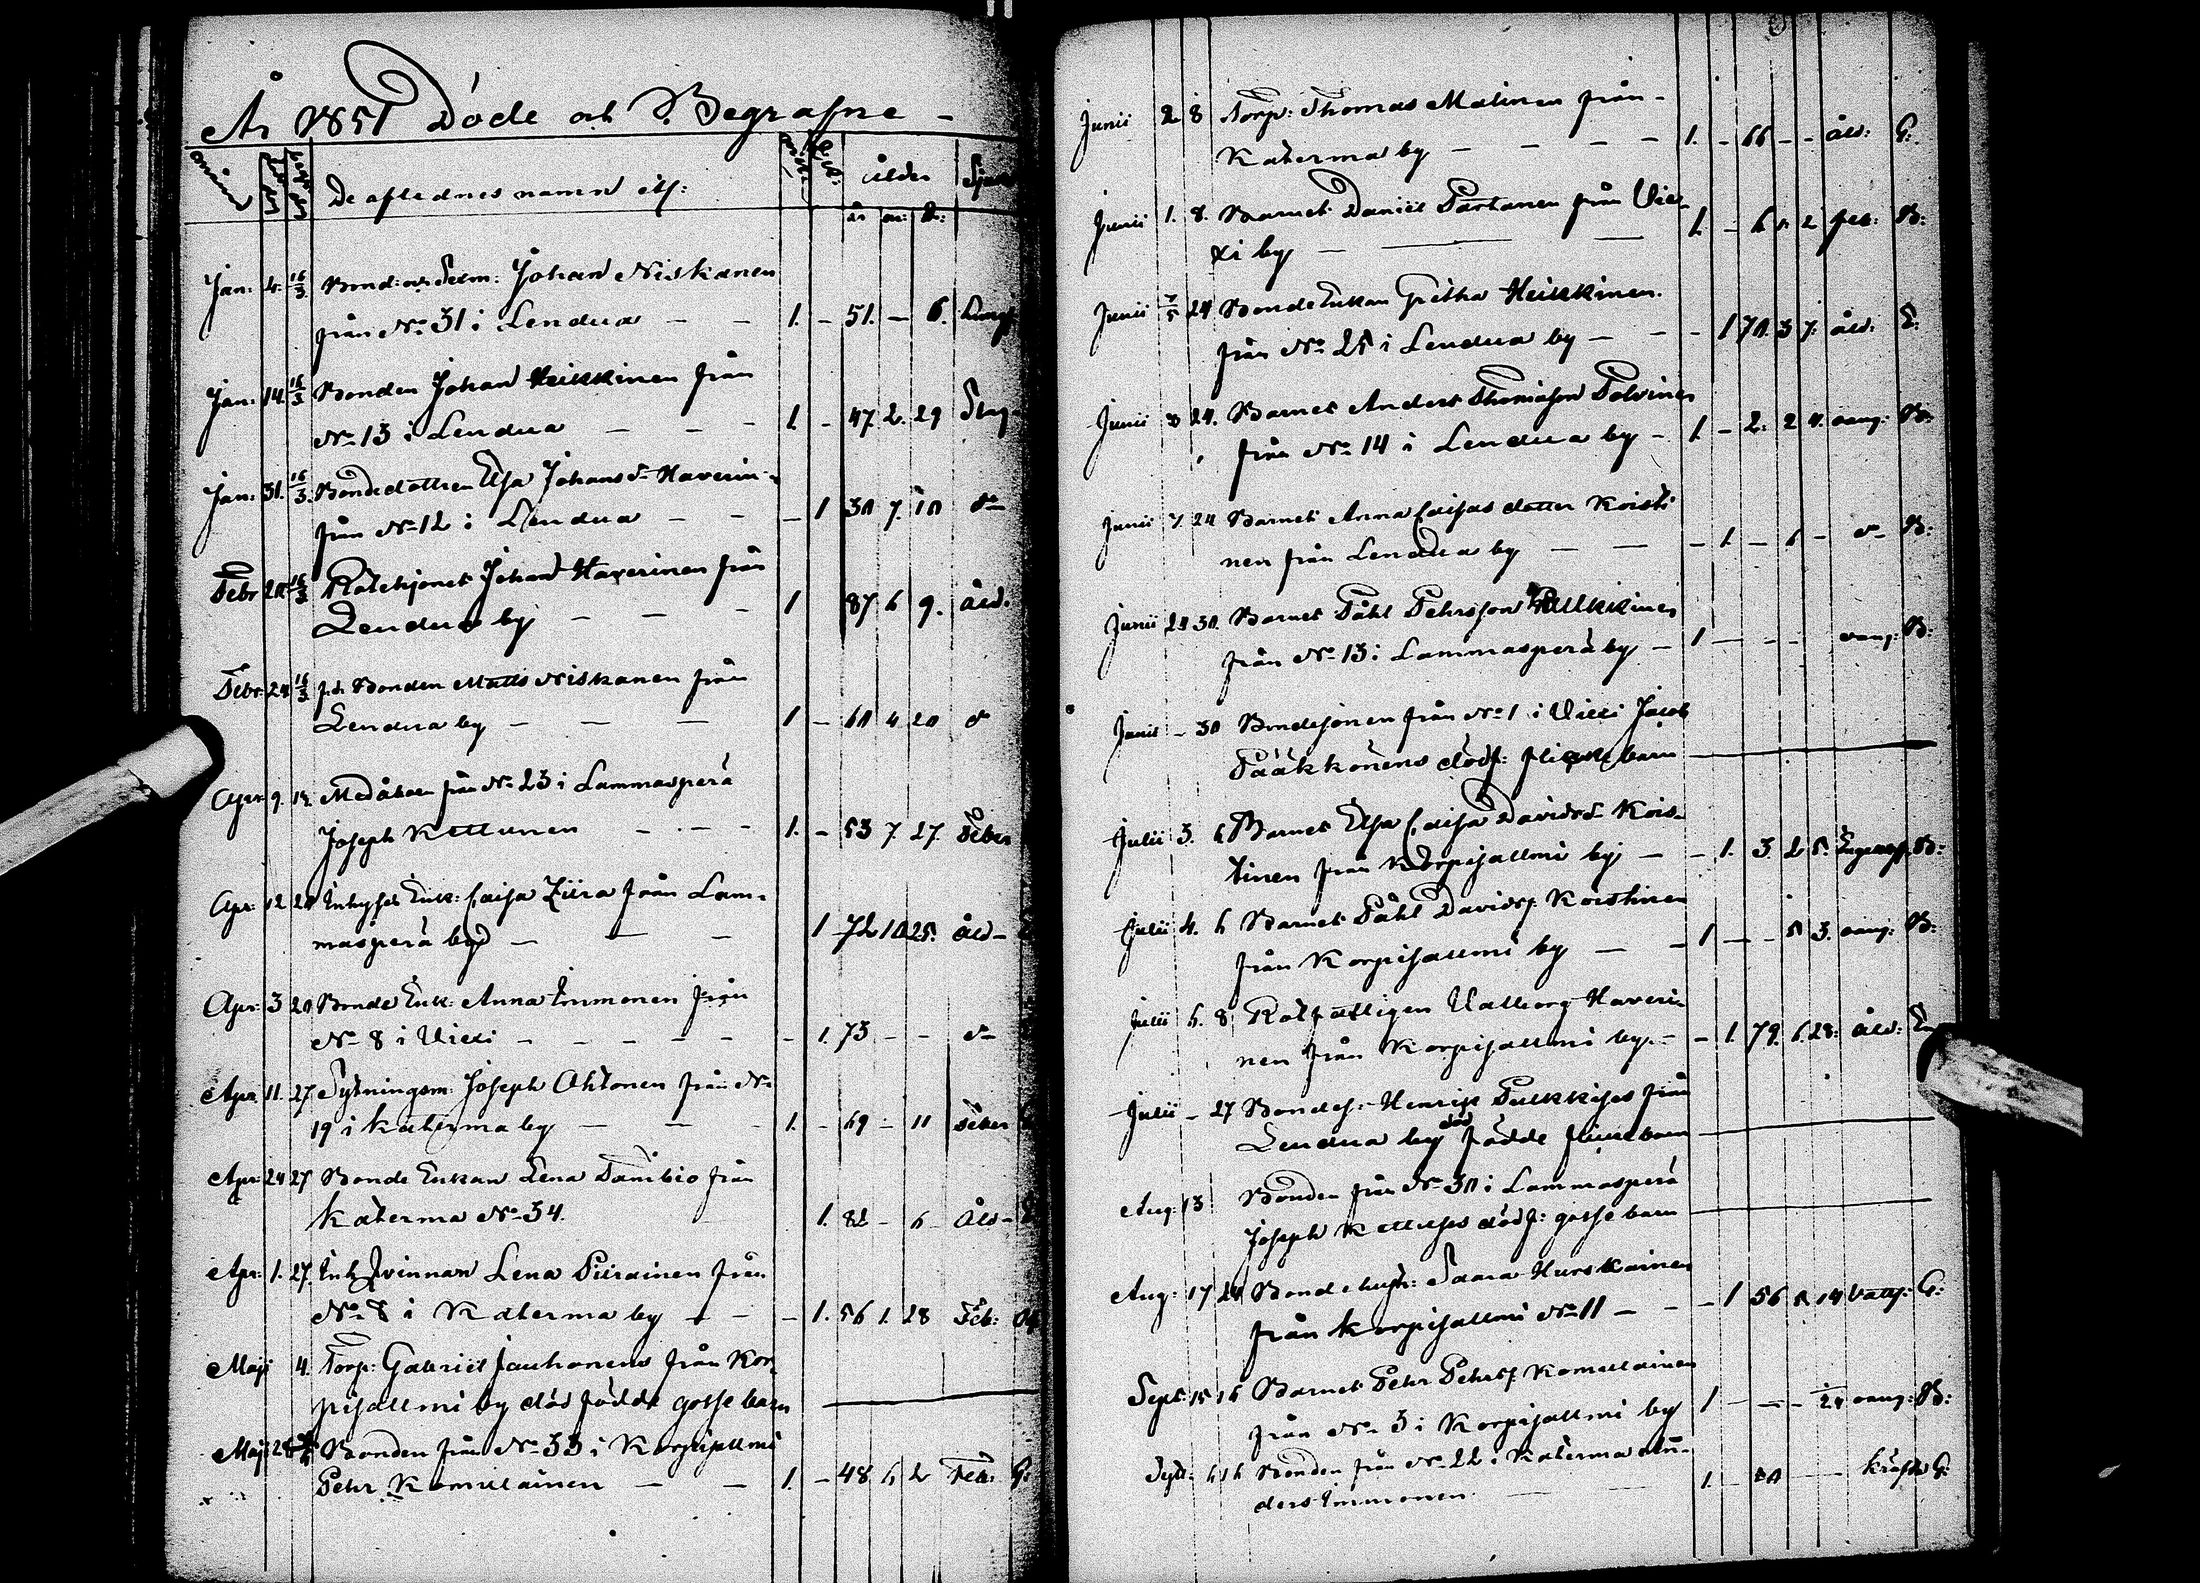 År 1851 Döde och Begrafne -
De aflednes namn etc: ålder
år m: d:
Jan: 4. 16/3 Bond: och Sexm: Johan Niskanen
från No 31 i Lendua — — 1. - 51. — 6. Lung
Jan: 14. 16/3 Bonden Johan Heikkinen från
No 13 i Lendua — — — 1. - 47. 2. 29
Jan: 31. 16/3 Bondedottren Elsa Johansdr Haverin-
från No 12 i Lendua — — — 1 30 7. 10 do
Febr 20 16/3 Rotehjonet Johan Haverinen från
Lendua by — — — 1 87 6 9. åld.
Febr: 24 16/3 f.d. Bonden Matts Niskanen från
Lendua by — — — 1 - 60 4 20 do
Apr: 9. 13. Medåboen från No 23 i Lammasperä
Joseph Kettunen — — — 1. - 53 7. 27. Feber
Apr: 12 20 Inhyses Enk: Caisa Ziira från Lam-
masperä by — — — 1 72 10 25. åld-
Apr: 3 20 Bonde Enk: Anna Immonen från
No 8 i Viexi — — — — 1. 73 - - do
Apr: 11. 27 Sytningsm: Joseph Ahtonen från No
19 i Katerma by — — — 1. - 69 - 11 Feber
Apr: 24 27 Bonde Enkan Lena Tambio från
Katerma No 34. 1. 82 - 6 åld- E
Apr: 1. 27. Inh Qvinnan Lena Piirainen från
No 8 i Katerma by — — 1. 56 1. 28 Feb:
Maji 4. Torp: Gabriel Jauhonens från Kor-
pisallmi by död födde gosse barn
Maji 28 Bonden från No 33 i Korpisallmi
Pehr Komulainen — — 1. - 48 6 2 Feb: G:
Junii 2 8 Torp: Thomas Malinen från -
Katerma by — — — — 1. - 66 - - åld: G:
Junii 1. 8. Barnet Daniel Partanen från Vie-
xi by — — — 1. - 6 2 feb: B:
Junii 7/5 24 Bonde Enkan Gretha Heikkinen.
från No 25 i Lendua by — - 1 70 3 7. åld: E:
Junii 3 24. Barnet Anders Thomasson Polvinen
från No 14 i Lendua by — 1. - 2. 2 4. oang: B:
Junii 7. 24 Barnet Anna Caisas dotter Koisti
nen från Lendua by — — - 1. - 6 - do B:
Junii 24 30. Barnet Påhl Pehrsson Pulkkinen
från No 13 i Lammasperä by — 1 — - - oang: B:
Junii - 30 Bondesonen från No 1 i Viexi Jacob
Pääkkönens dödf: flicke barn
Julii 3. 6 Barnet Elsa Caisa Davidsdr Kois-
tinen från Korpisallmi by — - 1. 3. 2 5. B:
Julii 4. 6 Barnet Påhl Davidss Koistinen
från Korpisallmi by — 1 — - 5 3. oang: B:
Julii 6. 8 Rotfattigen Valborg Haveri-
nen från Korpisallmi by. - - 1. 79. 6. 28: åld:
Julii - 27 Bondes: Henrik Pulkkises från
Lendua by död födde flicke barn
Aug: 13 Bonden från No 30 i Lammasperä
Joseph Kettuses dödf: gosse barn
Aug: 17 24 Bondehust: Saara Hurskainen
från Korpisallmi No 11 — - 1 56 8 14 Vatts: G:
Sept: 15 16 Barnet Pehr Pehrss Komulainen
från No 3 i Korpisallmi by 1 - - - 1/24 oang: B:
Sept: 6 16 Bonden från No 22 i Katerma An-
ders Immonen. — — 1. 50 — kräft G: